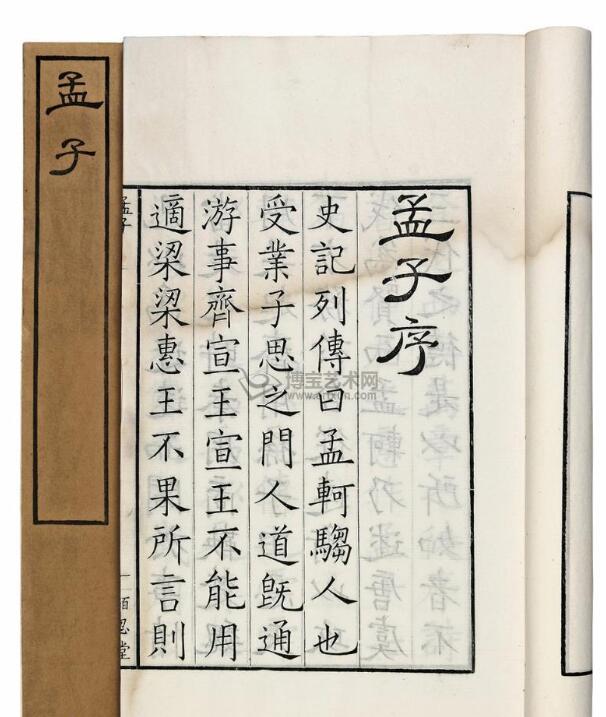 孟子
孟子序
史記列傳曰孟軻騶人也
受業子思之門人道既通
游事齊宣王宣王不能用
適梁梁惠王不果所言則
孟子
博宝艺术网
www.artxun.com